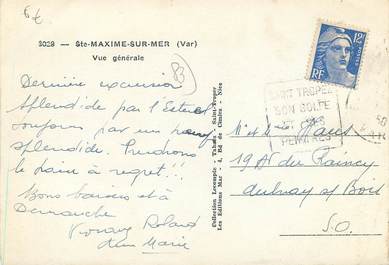 6€
3028 — Ste-MAXIME-SUR-MER (Var)
Vue générale
Dernière excursion
splendide par l'Esterel
toujours par un
splendide. Prendrons
le train à regret!!
Bons baisers et à
Dimanche
Roland
Marie
Collection Lecomple - Tabacs - Saint-Tropez
Les Editions Mar, 4, Bd de Cimiez - Nice
12F
RF
POSTES
SAINT TROPEZ
SON GOLFE
ET SES
M et Me
19 Av du Raincy
Aulnay s/ Bois
S.O.